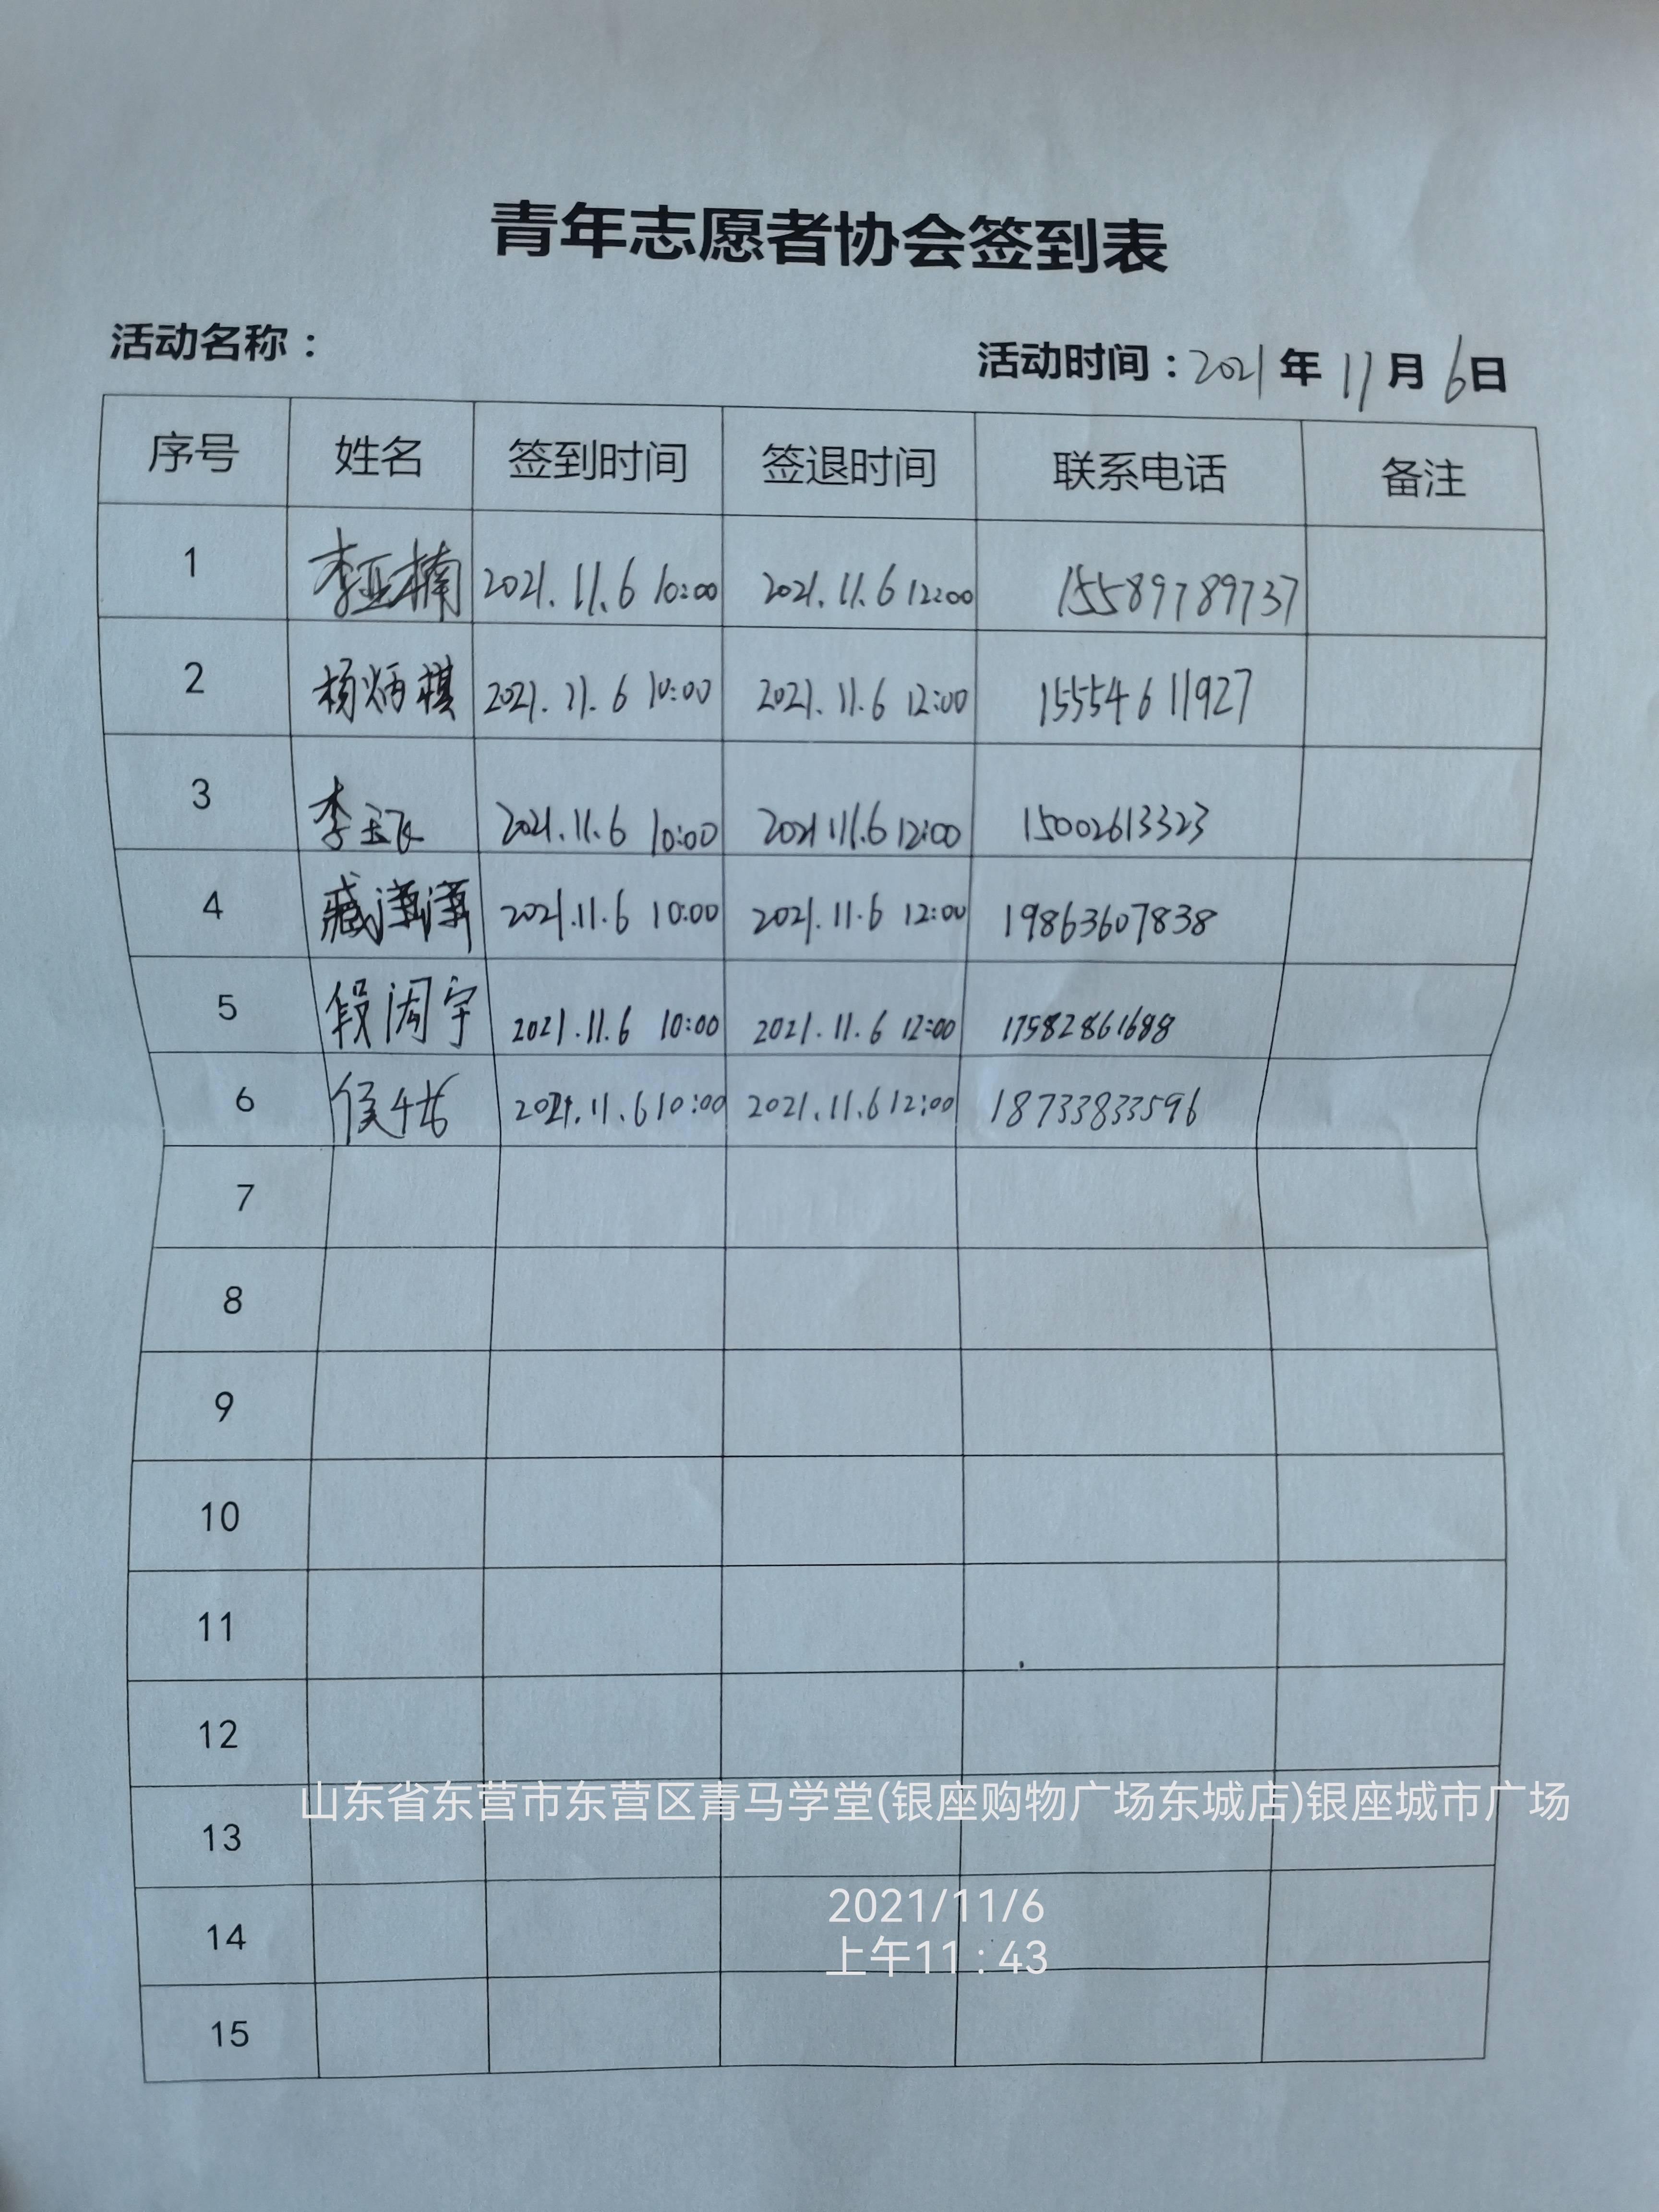 青年志愿者协会签到表
活动名称：
活动时间：2021年11月6日
序号 姓名 签到时间 签退时间 联系电话 备注
1 李亚楠 2021.11.6 10:00 2021.11.6 12:00 15589789737
2 杨炳棋 2021.11.6 10:00 2021.11.6 12:00 15554611927
3 李玉飞 2021.11.6 10:00 2021.11.6 12:00 15002613323
4 臧潇潇 2021.11.6 10:00 2021.11.6 12:00 19863607838
5 段闳宇 2021.11.6 10:00 2021.11.6 12:00 17582861688
6 侯 2021.11.6 10:00 2021.11.6 12:00 18733833596
7
8
9
10
11
12
山东省东营市东营区青马学堂(银座购物广场东城店)银座城市广场
13
2021/11/6
14
上午11:43
15